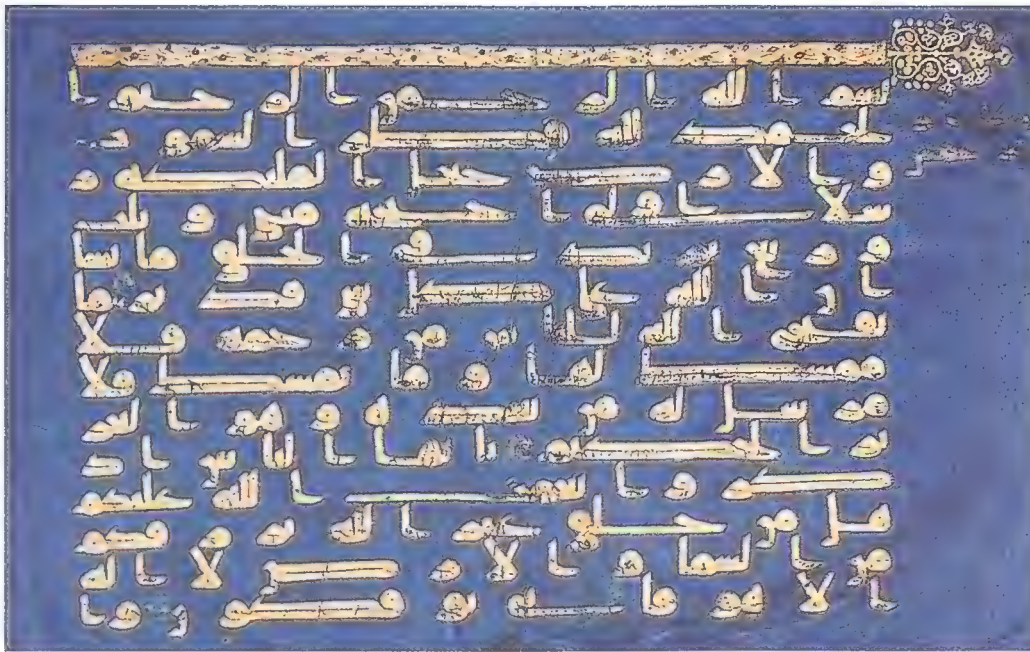 بسم الله الرحمن الرحيم ا
لحمد لله فطر السموت
والارض جعل الملئكة ر
سلا اولى اجنحة مثنى وثلث
وربع يزيد في الخلق ما يشا
ان الله على كل شى قدير ما
يفتح الله للناس من رحمة فلا
ممسك لها وما يمسك فلا
مرسل له من بعده وهو العز
يز الحكيم يايها الناس اذ
كروا نعمت الله عليكم
هل من خلق غير الله يرزقكم
من السما والارض لا اله
الا هو فانى توفكون وان